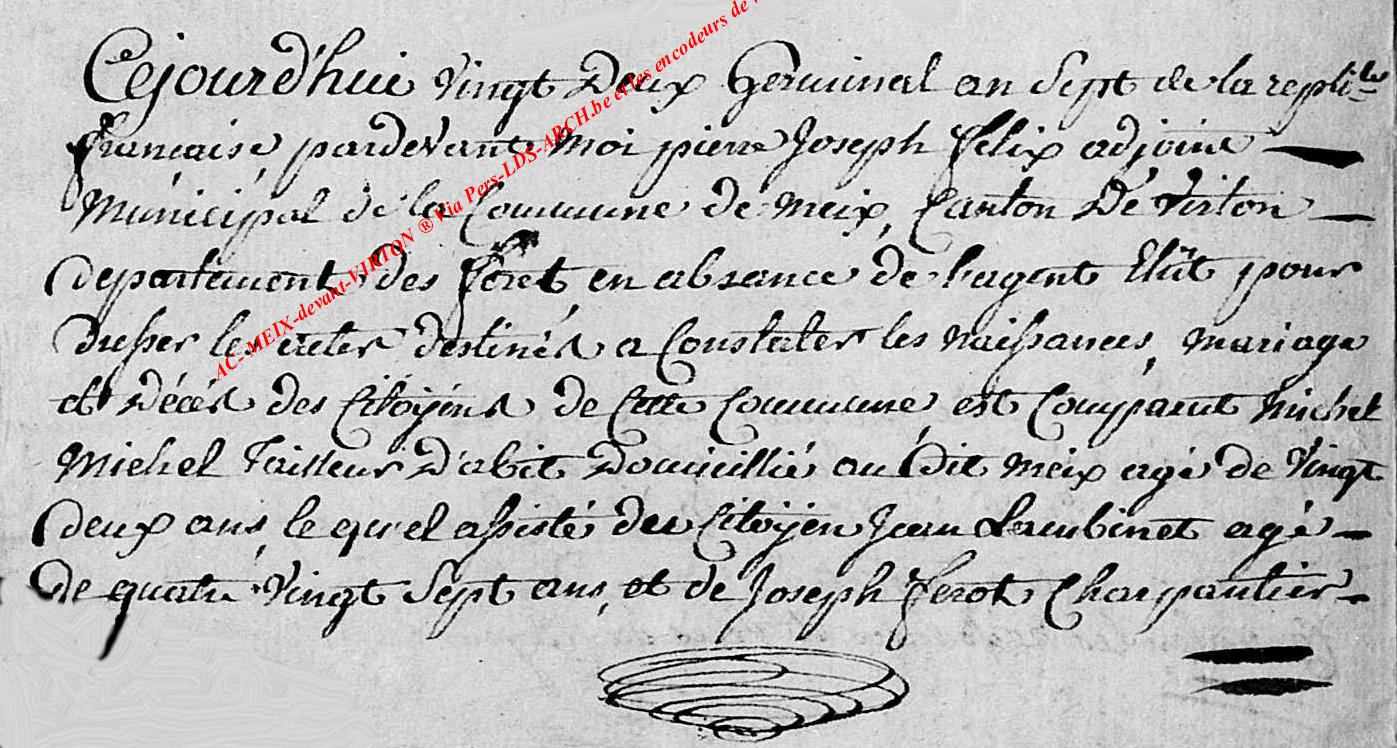 Cejourd'hui vingt Deux Germinal an Sept de la repli.le
française pardevant Moi pierre Joseph felix adjoint
Municipal de la Commune de meix, Canton De Virton
departement des foret en absance de l'agent Elût pour
dresser les actes destinés a Constater les Naissances, Mariage
et Décés des Citoyens de Cette Commune, est Comparut Michel
Michel Tailleur D'abit Domicillié au dit Meix agé de Vingt
deux ans, le quel assisté des Citoyen Jean Laubinet agé
de quatre Vingt Sept ans, et de Joseph ferot Charpantier
AC-MEIX-devant-VIRTON ® via Pers-LDS-ARCH.be et les encodeurs de